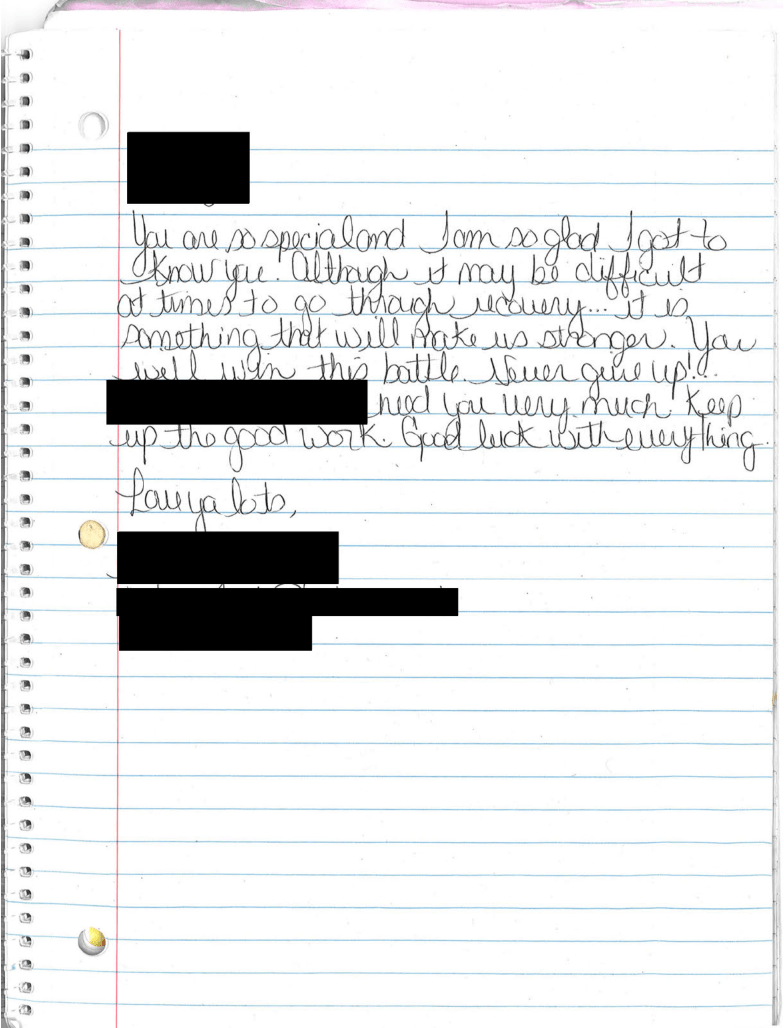 You are so special and I am so glad I got to
know you. Although it may be difficult
at times to go through recovery... it is
something that will make us stronger. You
will win this battle. Never give up!..
need you very much. Keep
up the good work. Good luck with everything.
Love ya lots,